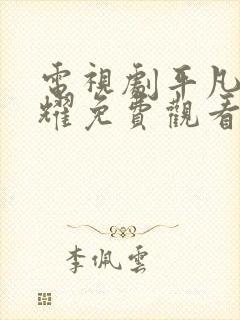 電視劇平凡
耀免費觀看
李佩雲